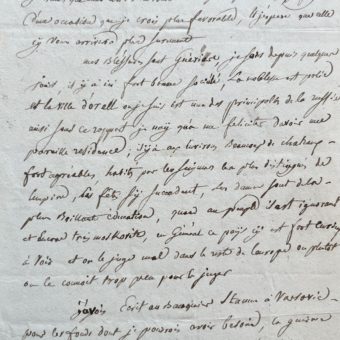 d'une occasion que je crois plus favorable, et j'espere que celle
cy vous arrivera plus surement
mes Blessures sont Gueries, je sors depuis quelques
jours, il y a ici fort bonne société, La noblesse est polie
et la ville d'orell ou je suis est une des principales de la russie
aussi sous ce raport je n'ay qu'a me feliciter d'avoir une
pareille residence, il y a aux environs Beaucoup de chateaux
fort agreables, habités par les seigneurs les plus distingués de
l'empire, Les fêtes s'y succedent, les dames sont de la
plus Brillante education, quand au peuple il est ignorant
et encore tres moskovite, en General ce pays cy est fort curieux
a voir et on le juge mal dans le reste de l'europe ou plutot
on le connoit trop peu pour le juger
j'avois Ecrit au Banquier a Varsovie
pour les fonds dont je pourrois avoir besoin, la guerre